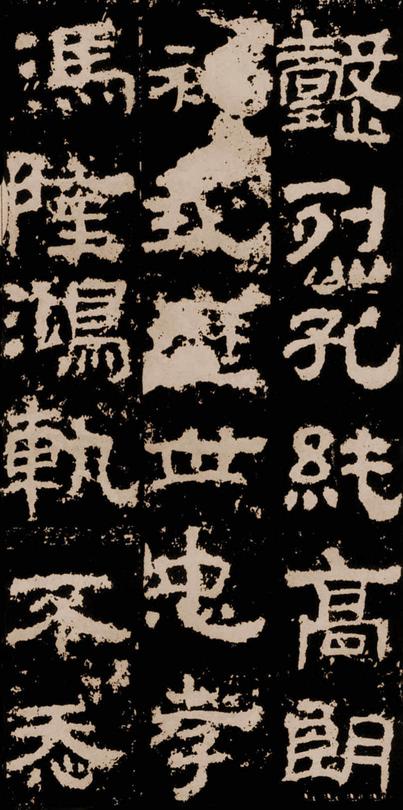 懿烈孔純高朗
神武歷世忠孝
馮隆鴻軌不忝